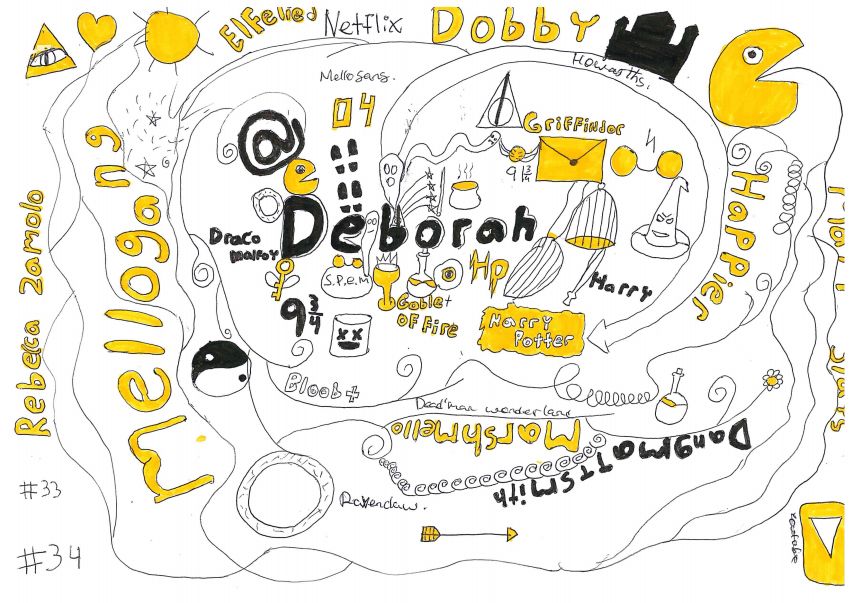 ElFelied
Netflix
Dobby
Howarths.
Mellosans.
04
Griffindor
@
9 3/4
Deborah
Draco
malfoy
S.P.E.M
HP
Harry
Goblet
OF Fire
9 3/4
Harry
Potter
Happier
Mellogang
Rebecca Zamolo
Bloob
Dead'man wonderland
Marshmello
DangmattSmith
Ravendaw.
#33
#34
youtube